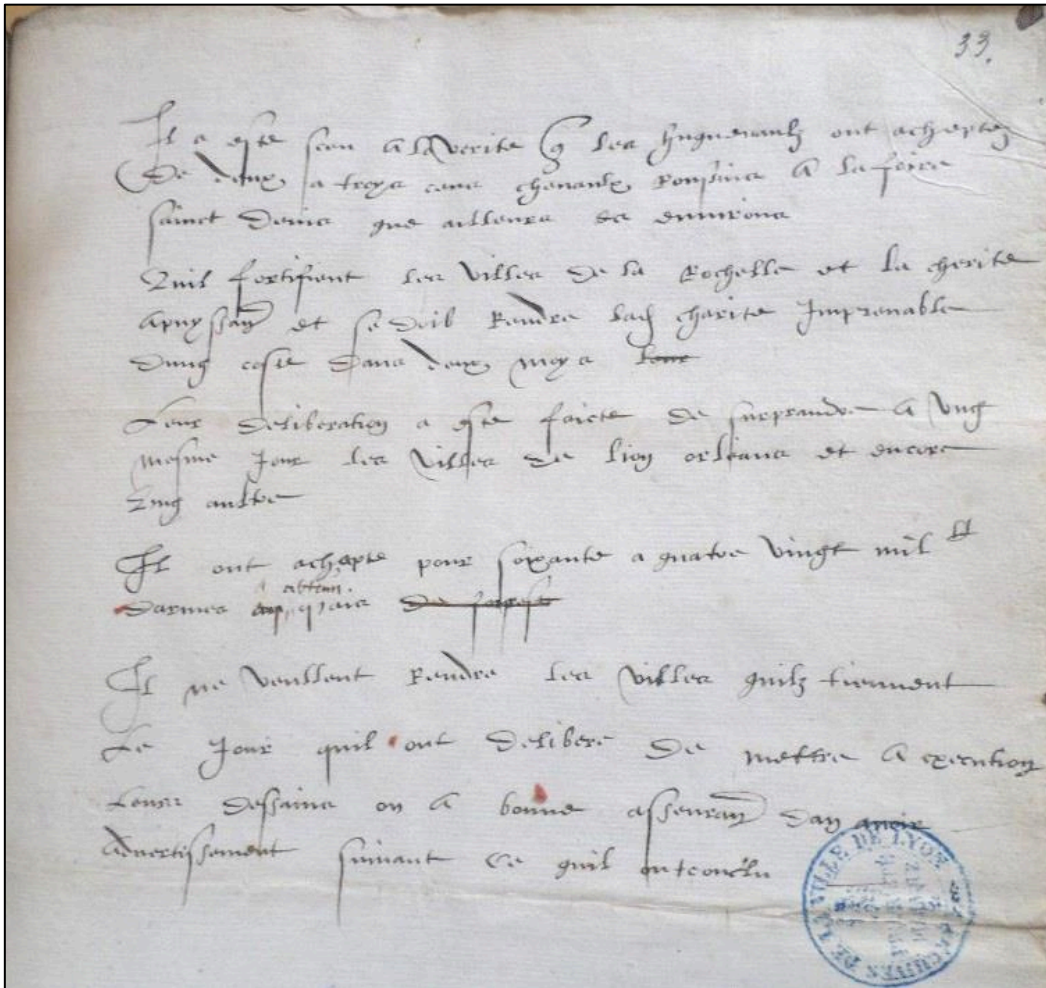 33.
Il a este sceu a la verite q les huguenaulz ont acheptez
De deux a troys cens chevaulx Roussins a la foire
sainct Denis que ailleurs es environs
Quil fortifient les villes de la Rochelle et la cherite
et se doib Rendre lad charite Imprenable
dung coste dans deux moys
Leur deliberation a este faicte de surprandre a ung
mesme Jour les villes de lion orleans et encore
ung aultre
Il ont achepte pour soixante a quatre vingt mil lt
darmes
Il ne veullent Rendre les villes quilz tiennent
Le Jour quil ont delibere de mettre a execution
Leurs dessains on a bonne asseuran dan avoir
advertissement suivant ce quil ont conclu
ARCHIVES DE LA VILLE DE LYON